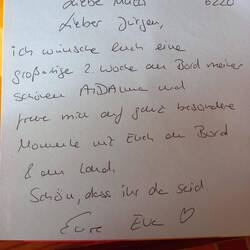 Liebe 6220
Lieber Jürgen,
ich wünsche Euch eine
großartige 2. Woche an Bord meiner
schönen AIDAluna und
freue mich auf ganz besondere
Momente mit Euch an Bord
& an Land.
Schön, dass ihr da seid.
Eure Eva ♡